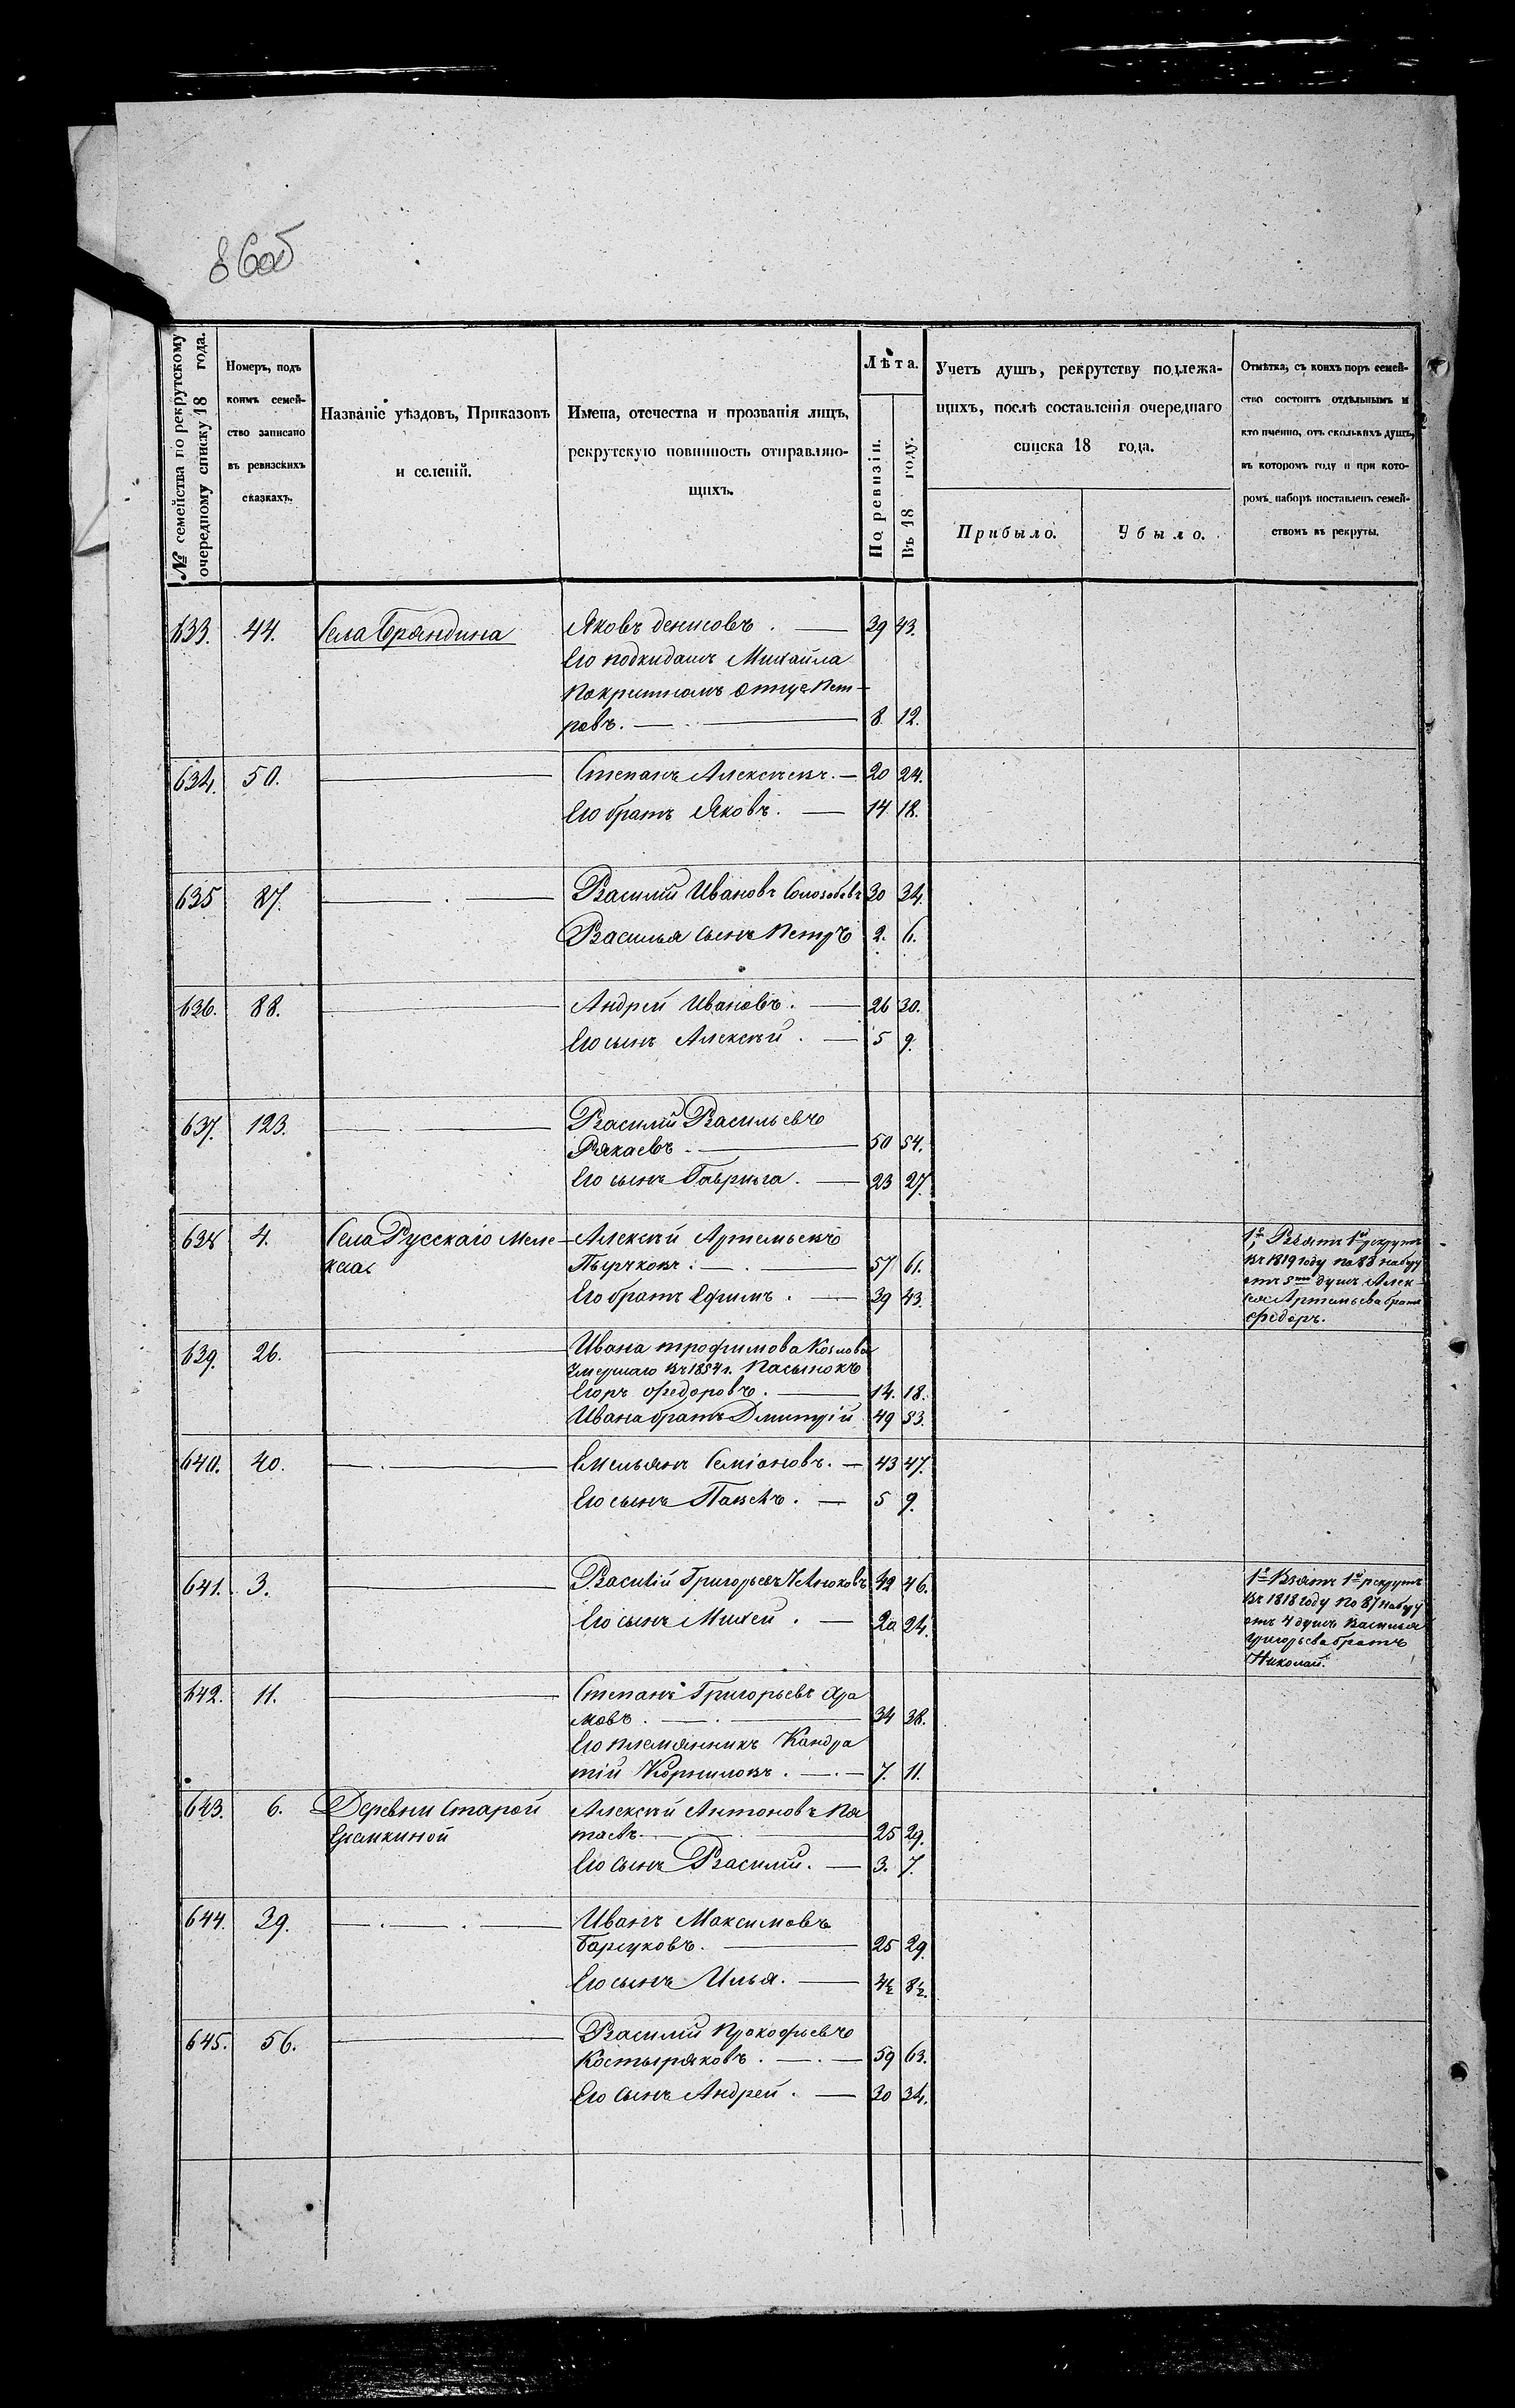 86об
№ семейства по рекрутскому
очередному списку 18 года.
Номеръ, подъ
коимъ семей-
ство записано
въ ревизскихъ
сказкахъ.
Названіе уѣздовъ, Приказовъ
и селеній.
Имена, отчества и прозванія лицъ,
рекрутскую повинность отправляю-
щихъ.
Лѣта.
По ревизіи.
Въ 18 году.
Учетъ душъ, рекрутству подлежа-
щихъ, послѣ составленія очереднаго
списка 18 года.
Прибыло.
Убыло.
Отмѣтка, съ коихъ поръ семей-
ство состоитъ отдѣльнымъ и
кто именно, отъ сколькихъ душъ,
въ которомъ году и при кото-
ромъ наборѣ поставленъ семей-
ствомъ въ рекруты.
633. 44. Села Бряндина Яковъ Денисовъ. 39 43.
Его подкидышъ Михайла
по крестномъ отцѣ Пет-
ровъ. 8 12.
634. 50. Степанъ Алексѣевъ. 20 24.
Его братъ Яковъ. 14 18.
635 87. Василій Ивановъ 30 34.
Василья сынъ Петръ 2. 6.
636. 88. Андрей Ивановъ. 26 30.
Его сынъ Алексѣй. 5 9.
637. 123. Василій Васильевъ
Рякаевъ. 50 54.
Его сынъ Гаврила. 23 27.
638 4. Села Русскаго Меле- Алексѣй Артемьевъ
кеса Пырчковъ. 57 61.
Его братъ Ефимъ. 39 43.
1е, Взятъ 1й рекрутъ
въ 1819 году по 88 набору
отъ 5ти душъ Алек-
сея Артемьева братъ
Федоръ.
639. 26. Ивана Трофимова Козлова
Умершаго въ 1854 г. пасынокъ
Егоръ Федоровъ. 14. 18.
Ивана братъ Дмитрій 49 53.
640. 40. Емельянъ Семіоновъ. 43 47.
Его сынъ Павелъ. 5 9.
641. 3. Василій Григорьевъ 42 46.
Его сынъ Михей. 20 24.
1е Взятъ 1й рекрутъ
въ 1818 году по 87 набору
отъ 4 душъ Василья
Григорьева братъ
Николай.
642. 11. Степанъ Григорьевъ Хра
мовъ. 34 38.
Его племянникъ Кандра
тій Корниловъ. 7. 11.
643. 6. Деревни Старой Алексѣй Антоновъ По
Ерыклинской 25 29.
Его сынъ Василій. 3. 7.
644. 39. Иванъ Максимовъ
Барсуковъ. 25 29.
Его сынъ Илья. 4½ 8½.
645. 56. Василій Прокофьевъ
Костыряковъ. 59 63.
Его сынъ Андрей. 30 34.